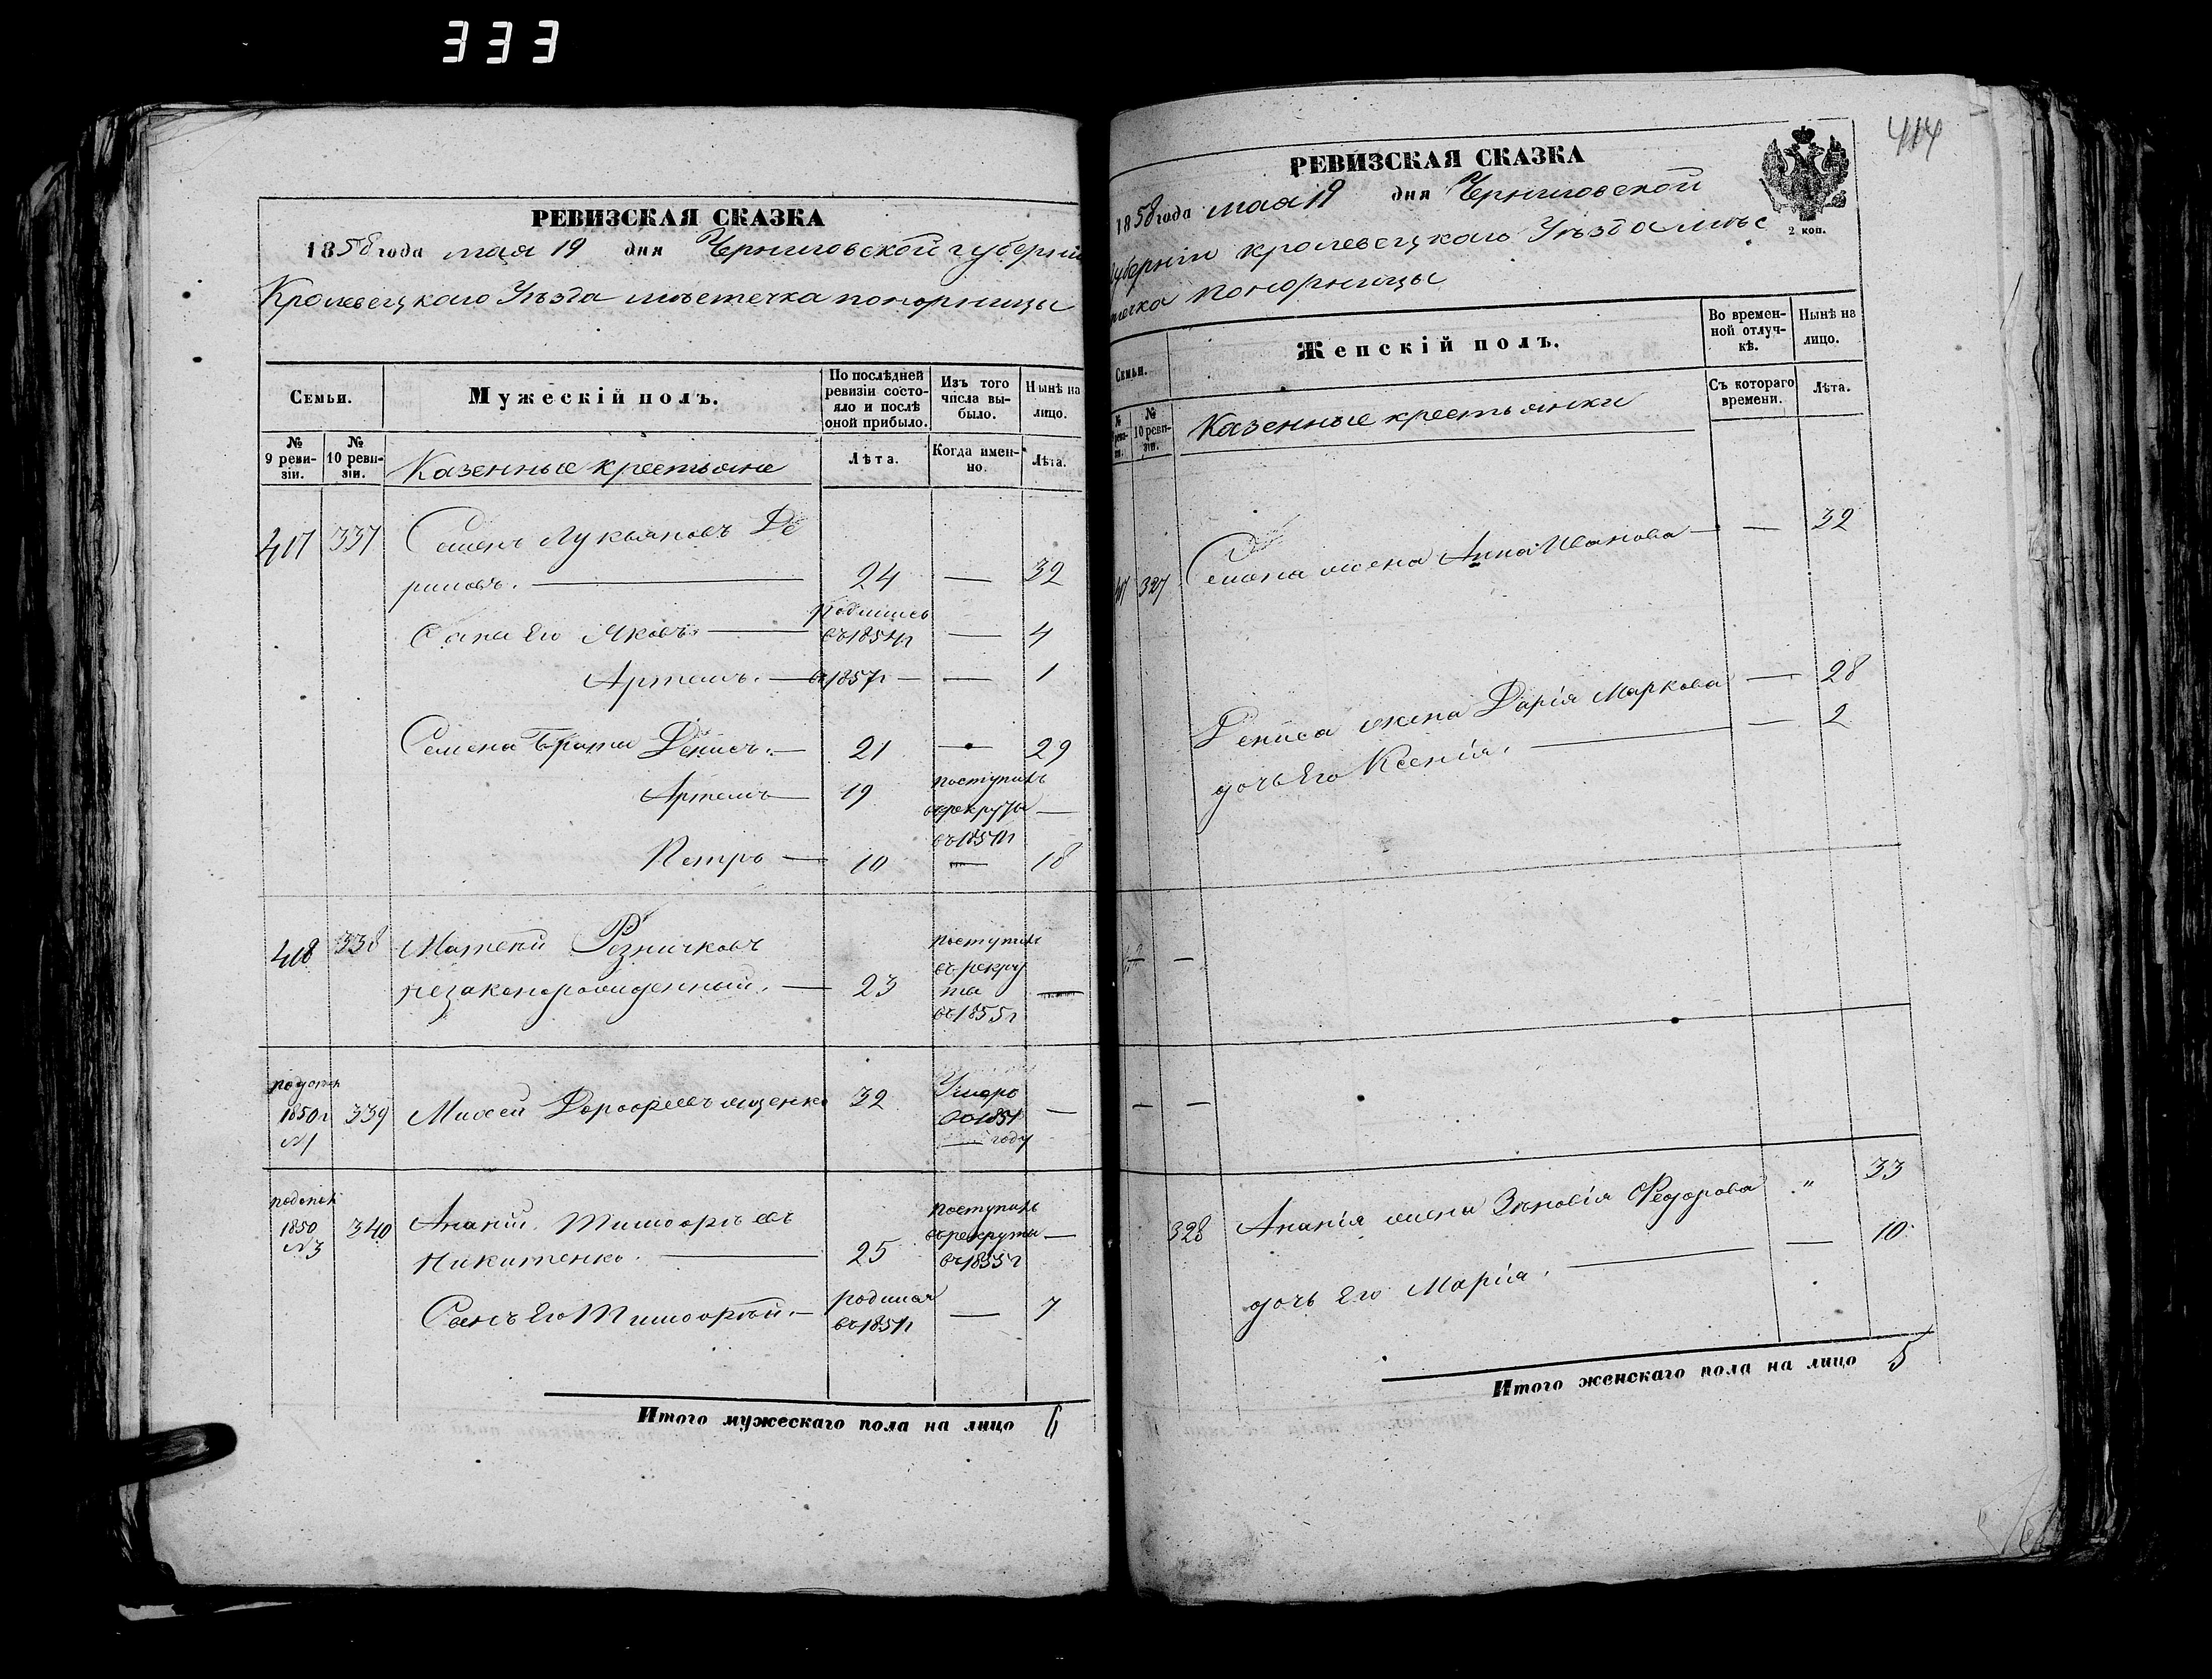 333
РЕВИЗСКАЯ СКАЗКА
1858 года мая 19 дня Черниговской губерніи
Кролевецкаго Уѣзда мѣстечка понорницы
Семьи.
Мужескій полъ.
По послѣдней ревизіи состояло и послѣ оной прибыло.
Изъ того числа выбыло.
Нынѣ на лицо.
№ 9 ревизіи.
№ 10 ревизіи.
Казенные крестьяне
Лѣта.
Когда именно.
Лѣта.
417 337 Семенъ Лукьяновъ Де
риновъ. — 24 — 32
родились
Сына Его Яковъ. — въ 1854 г — 4
Артемъ. — въ 1857 г — — 1
Семена Братья Денисъ. — 21 — 29
Артемъ — 19 поступилъ
въ рекруты —
въ 1854 г
Петръ — 10 — 18
418 338 Матвей Резничковъ поступилъ
незаконорожденный. — 23 въ рекру
ты —
въ 1855 г
1850 г 339 Мисей Дорофеевъ 32 Умеръ —
№1 въ 1851
году
1850 340 Ананій Тимофѣевъ поступилъ
№3 въ рекруты —
Никитенко. — 25 въ 1855 г
Сынъ Его Тимофѣй. — родился — 7
въ 1851 г
Итого мужескаго пола на лицо 6
414
РЕВИЗСКАЯ СКАЗКА
1858 года мая 19 дня Черниговской
губерніи кролевецкаго Уѣзда мѣс
течка понорницы
2 коп.
Семьи.
Женскій полъ.
Во временной отлучкѣ.
Нынѣ на лицо.
№ ревизіи.
№ 10 ревизіи.
Казенные крестьянки
Съ котораго времени.
Лѣта.
417 327 Семена жена Анна Иванова — — 32
Дениса жена Дарія Маркова — 28
дочь Его Ксенія. — — 2
— —
— —
328 Ананія жена Зѣновія Федорова " 33
дочь Его Марія. — — 10
Итого женскаго пола на лицо 5